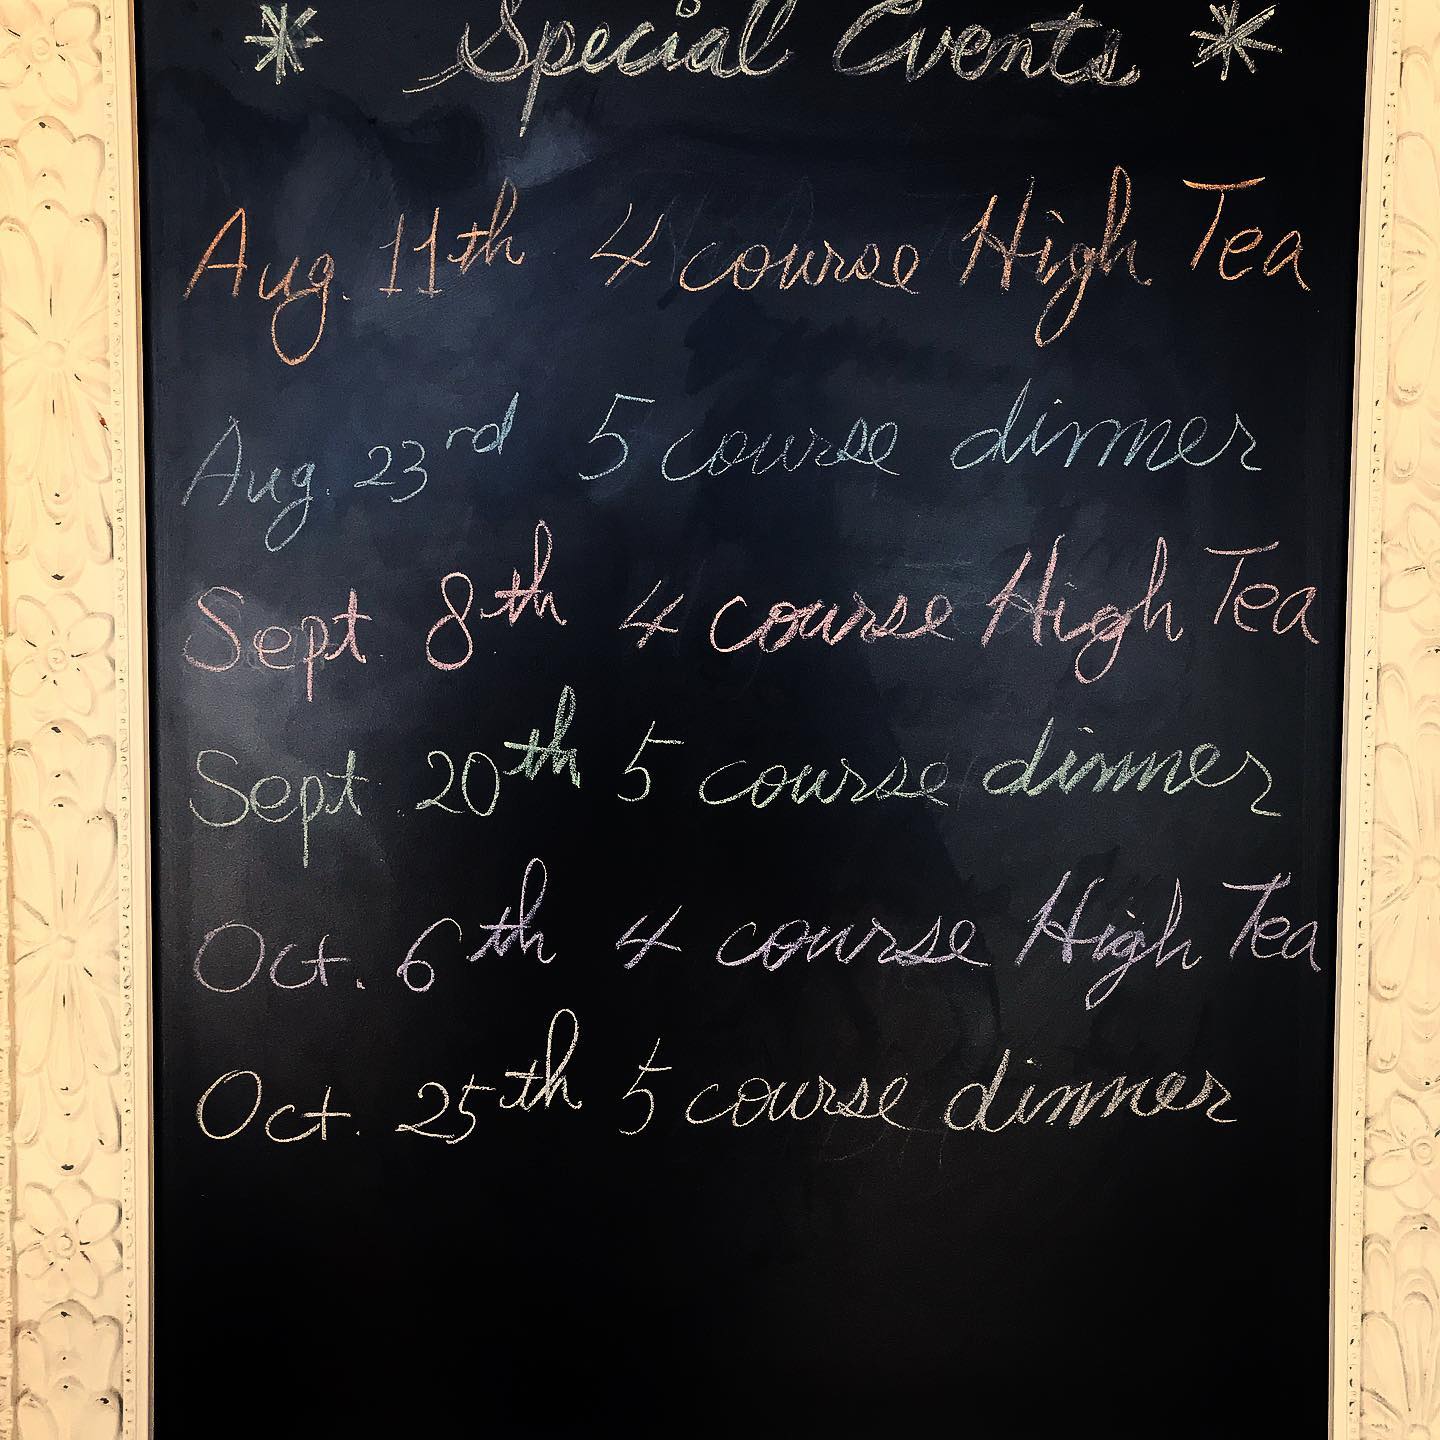 * Special Events *
Aug. 11th 4 course High Tea
Aug. 23rd 5 course dinner
Sept. 8th 4 course High Tea
Sept. 20th 5 course dinner
Oct. 6th 4 course High Tea
Oct. 25th 5 course dinner